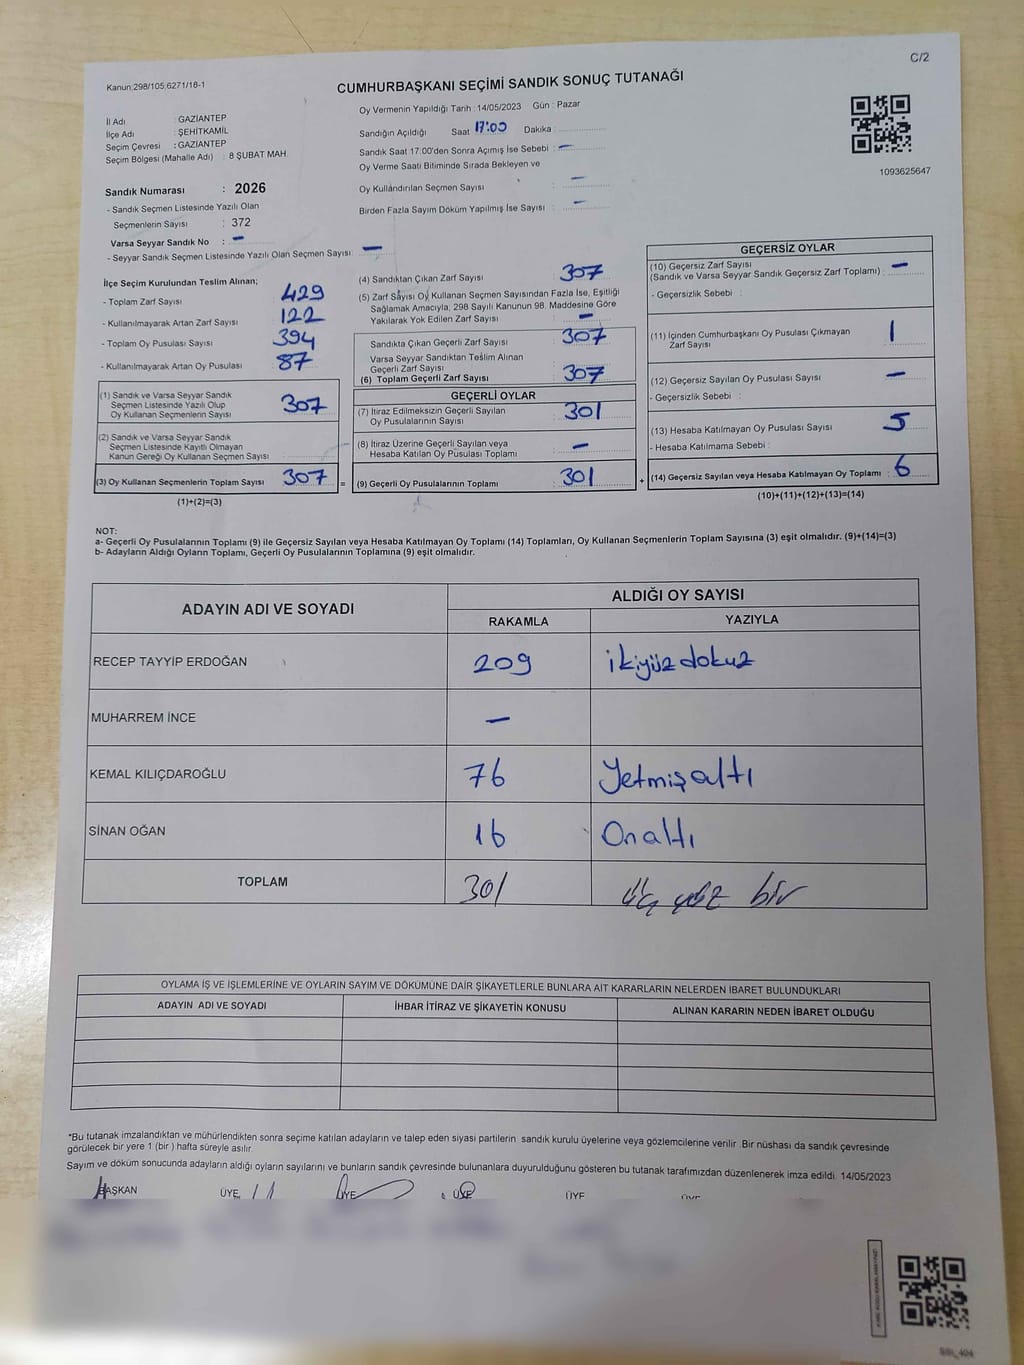 C/2
Kanun:298/105;6271/18-1
CUMHURBAŞKANI SEÇİMİ SANDIK SONUÇ TUTANAĞI
1093625647
İl Adı : GAZİANTEP
İlçe Adı : ŞEHİTKAMİL
Seçim Çevresi : GAZİANTEP
Seçim Bölgesi (Mahalle Adı) : 8 ŞUBAT MAH.
Sandık Numarası : 2026
- Sandık Seçmen Listesinde Yazılı Olan
Seçmenlerin Sayısı : 372
Varsa Seyyar Sandık No : -
- Seyyar Sandık Seçmen Listesinde Yazılı Olan Seçmen Sayısı: -
Oy Vermenin Yapıldığı Tarih : 14/05/2023 Gün : Pazar
Sandığın Açıldığı Saat 17:00 Dakika :
Sandık Saat 17:00'den Sonra Açımış İse Sebebi : -
Oy Verme Saati Bitiminde Sırada Bekleyen ve
Oy Kullandırılan Seçmen Sayısı : -
Birden Fazla Sayım Döküm Yapılmış İse Sayısı : -
İlçe Seçim Kurulundan Teslim Alınan;
- Toplam Zarf Sayısı : 429
- Kullanılmayarak Artan Zarf Sayısı : 122
- Toplam Oy Pusulası Sayısı : 394
- Kullanılmayarak Artan Oy Pusulası : 87
(1) Sandık ve Varsa Seyyar Sandık
Seçmen Listesinde Yazılı Olup
Oy Kullanan Seçmenlerin Sayısı : 307
(2) Sandık ve Varsa Seyyar Sandık
Seçmen Listesinde Kayıtlı Olmayan
Kanun Gereği Oy Kullanan Seçmen Sayısı :
(3) Oy Kullanan Seçmenlerin Toplam Sayısı : 307 =
(1)+(2)=(3)
(4) Sandıktan Çıkan Zarf Sayısı : 307
(5) Zarf Sayısı Oy Kullanan Seçmen Sayısından Fazla İse, Eşitliği
Sağlamak Amacıyla, 298 Sayılı Kanunun 98. Maddesine Göre
Yakılarak Yok Edilen Zarf Sayısı : -
Sandıkta Çıkan Geçerli Zarf Sayısı : 307
Varsa Seyyar Sandıktan Teslim Alınan
Geçerli Zarf Sayısı
(6) Toplam Geçerli Zarf Sayısı : 307
GEÇERLİ OYLAR
(7) İtiraz Edilmeksizin Geçerli Sayılan
Oy Pusulalarının Sayısı : 301
(8) İtiraz Üzerine Geçerli Sayılan veya
Hesaba Katılan Oy Pusulası Toplamı : -
(9) Geçerli Oy Pusulalarının Toplamı : 301 +
GEÇERSİZ OYLAR
(10) Geçersiz Zarf Sayısı
(Sandık ve Varsa Seyyar Sandık Geçersiz Zarf Toplamı) : -
- Geçersizlik Sebebi :
(11) İçinden Cumhurbaşkanı Oy Pusulası Çıkmayan
Zarf Sayısı : 1
(12) Geçersiz Sayılan Oy Pusulası Sayısı : -
- Geçersizlik Sebebi :
(13) Hesaba Katılmayan Oy Pusulası Sayısı : 5
- Hesaba Katılmama Sebebi :
(14) Geçersiz Sayılan veya Hesaba Katılmayan Oy Toplamı : 6
(10)+(11)+(12)+(13)=(14)
NOT:
a- Geçerli Oy Pusulalarının Toplamı (9) ile Geçersiz Sayılan veya Hesaba Katılmayan Oy Toplamı (14) Toplamları, Oy Kullanan Seçmenlerin Toplam Sayısına (3) eşit olmalıdır. (9)+(14)=(3)
b- Adayların Aldığı Oyların Toplamı, Geçerli Oy Pusulalarının Toplamına (9) eşit olmalıdır.
ADAYIN ADI VE SOYADI
ALDIĞI OY SAYISI
RAKAMLA YAZIYLA
RECEP TAYYİP ERDOĞAN 209 ikiyüzdokuz
MUHARREM İNCE -
KEMAL KILIÇDAROĞLU 76 Yetmişaltı
SİNAN OĞAN 16 Onaltı
TOPLAM 301 üç yüz bir
OYLAMA İŞ VE İŞLEMLERİNE VE OYLARIN SAYIM VE DÖKÜMÜNE DAİR ŞİKAYETLERLE BUNLARA AİT KARARLARIN NELERDEN İBARET BULUNDUKLARI
ADAYIN ADI VE SOYADI İHBAR İTİRAZ VE ŞİKAYETİN KONUSU ALINAN KARARIN NEDEN İBARET OLDUĞU
*Bu tutanak imzalandıktan ve mühürlendikten sonra seçime katılan adayların ve talep eden siyasi partilerin sandık kurulu üyelerine veya gözlemcilerine verilir. Bir nüshası da sandık çevresinde
görülecek bir yere 1 (bir) hafta süreyle asılır.
Sayım ve döküm sonucunda adayların aldığı oyların sayılarını ve bunların sandık çevresinde bulunanlara duyurulduğunu gösteren bu tutanak tarafımızdan düzenlenerek imza edildi. 14/05/2023
BAŞKAN ÜYE ÜYE ÜYE ÜYE ÜYE